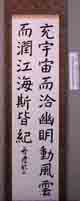 充宇宙而洽幽明動風雲
而潤江海斯皆紀